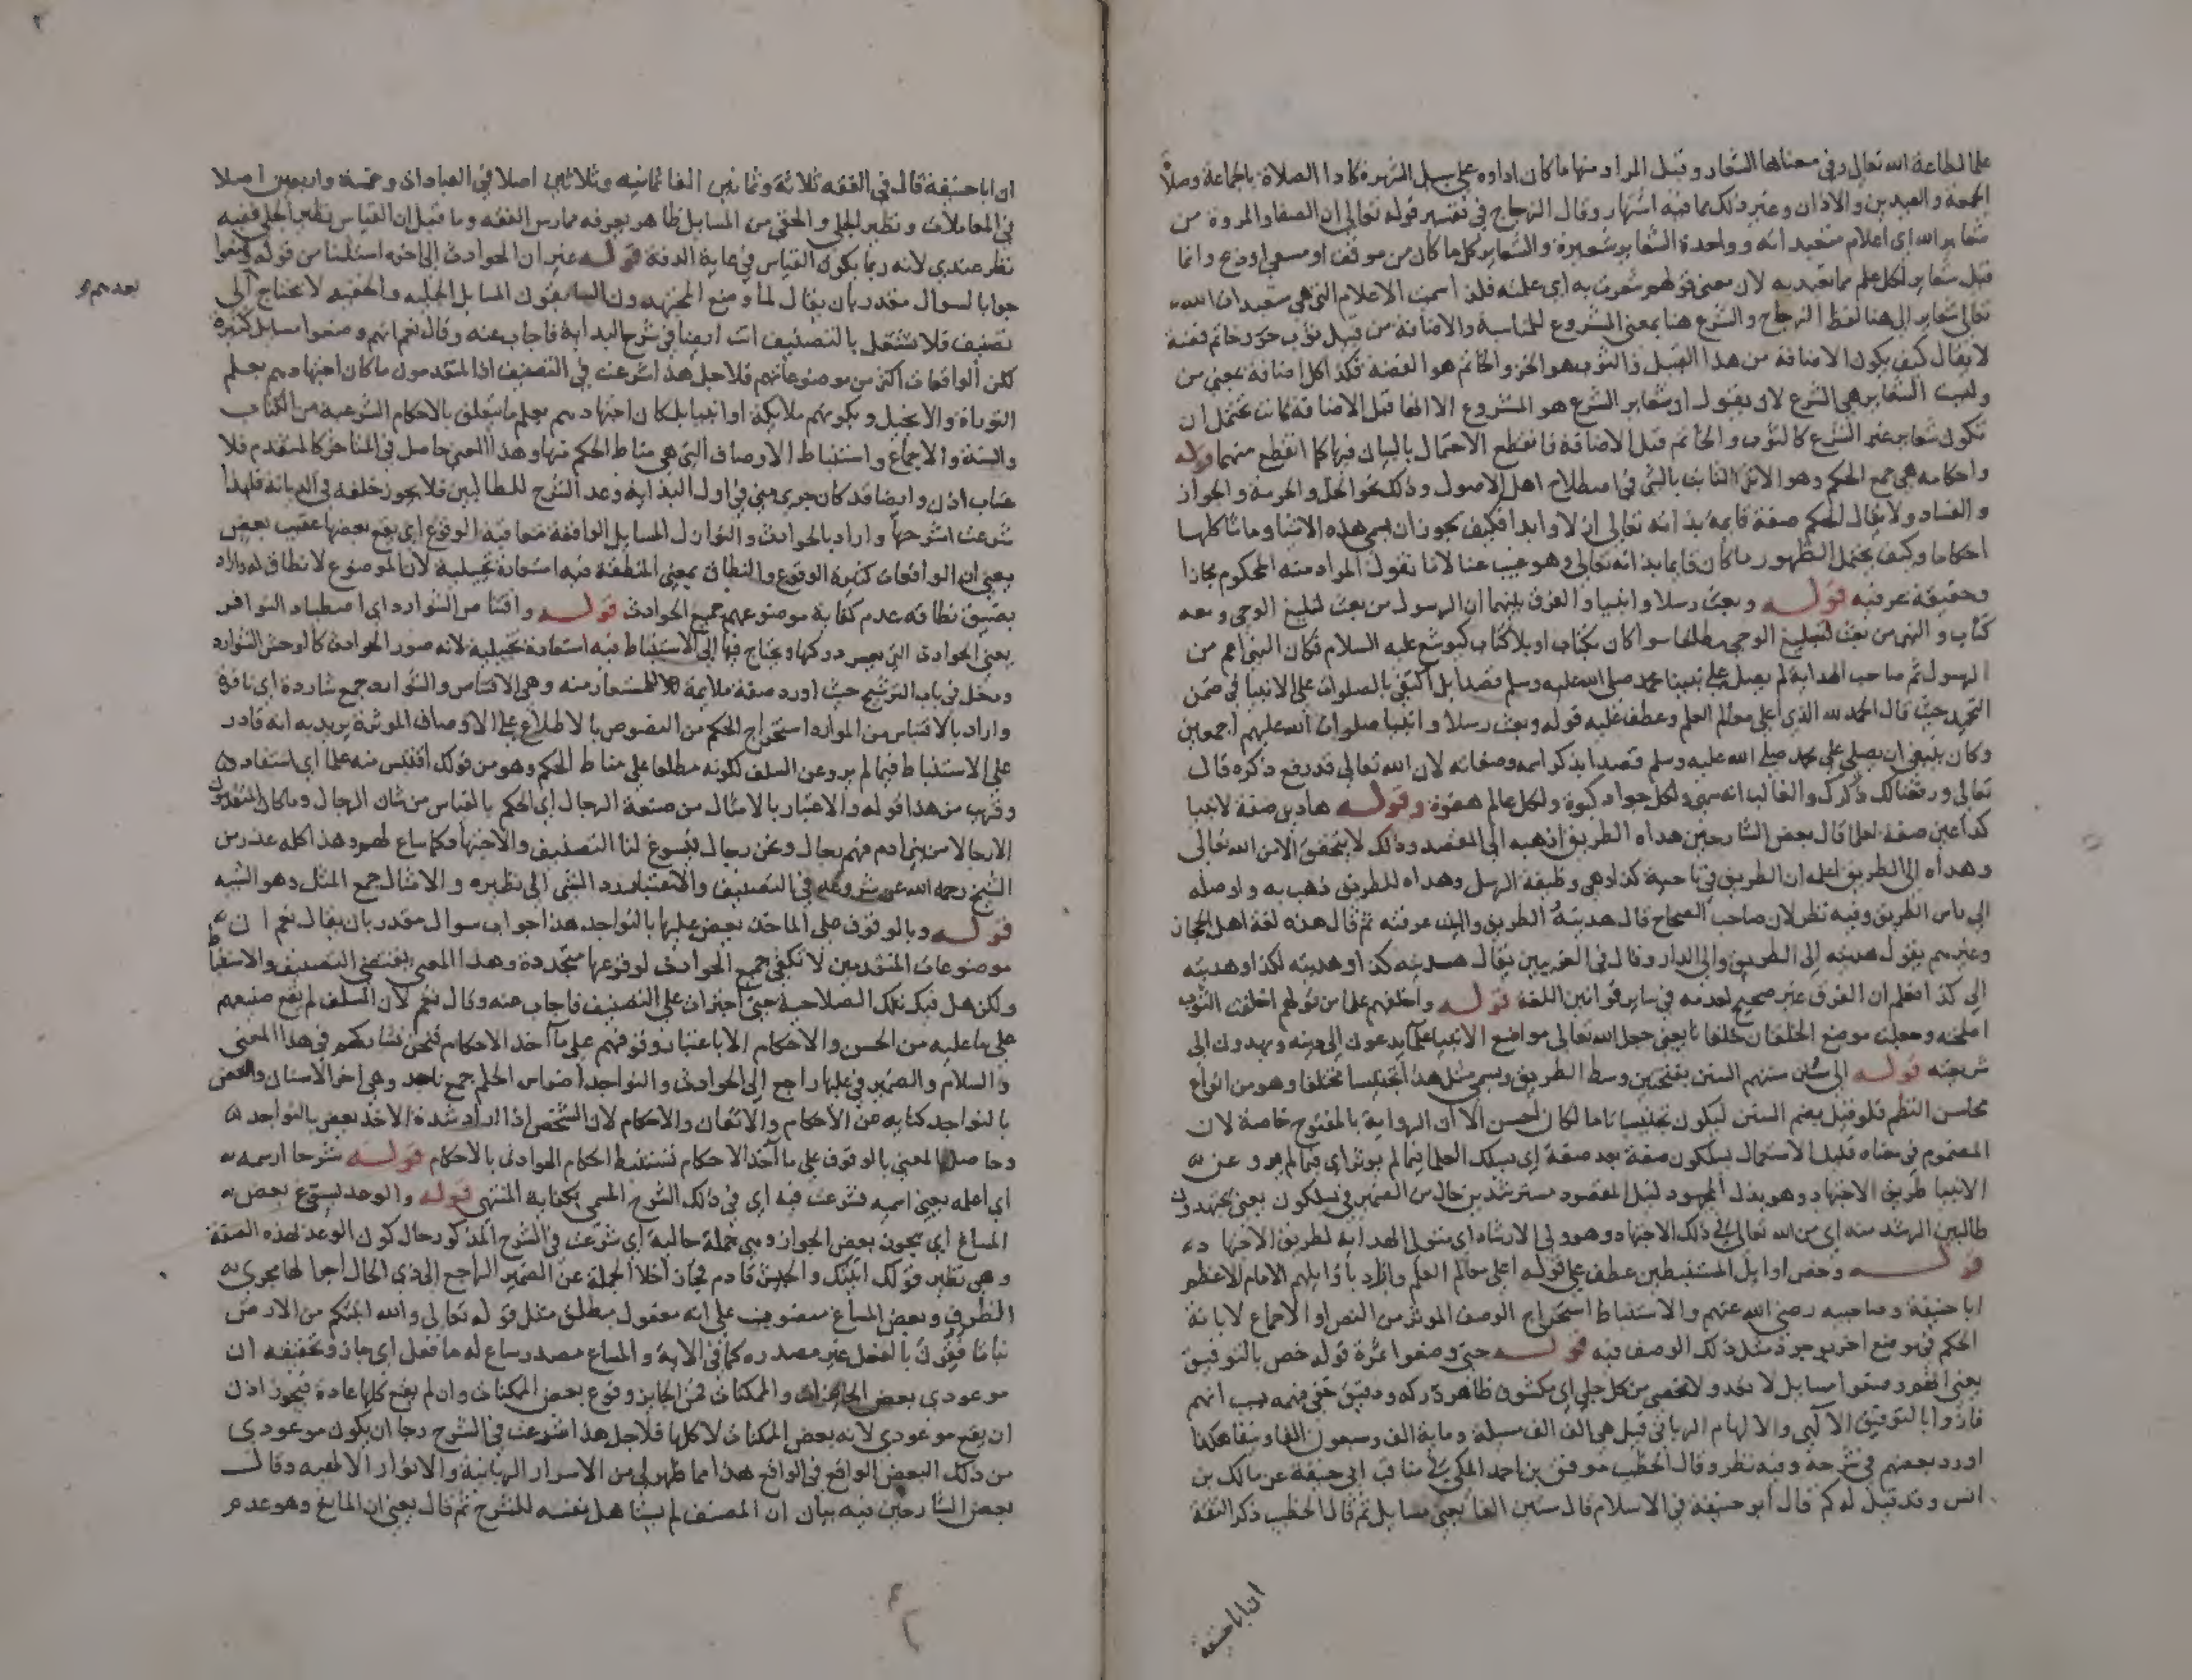 علما لطاعة الله تعالى وفي معناها الشعار وقيل المراد منها ما كان اداوه على سبيل الشهرة كاداء الصلاة بالجماعة وصلاة
الجمعة والعيدين والاذان وغير ذلك مما فيه اشتهار وقال الزجاج في تفسير قوله تعالى ان الصفا والمروة من
شعاير الله اي اعلام متعبداته وواحدة الشعاير شعيرة والشعاير كل ما كان من موقف او مسعى او ذبح وانما
قيل شعاير لكل علم مما تعبد به لان معنى قولهم شعرت به اي علمته فلذا سميت الاعلام التي هي متعبدات الله
تعالى شعاير الى هنا لفظ الزجاج والشرع هنا بمعنى المشروع للمناسبة والاضافة من قبيل ثوب خز وخاتم فضة
لا يقال كيف يكون الاضافة من هذا القبيل فالثوب هو الخز والخاتم هو الفضة فكذا كل اضافة بمعنى من
وليست الشعاير هي الشرع لانا نقول ان شعاير الشرع هو المشروع الا انها قبل الاضافة كانت تحتمل ان
تكون شعاير غير الشرع كالثوب والخاتم قبل الاضافة فانقطع الاحتمال بالبيان فيها كما انقطع منهما قوله
واحكامه هي جمع الحكم وهو الاثر الثابت بالشي في اصطلاح اهل الاصول وذلك نحو الحل والحرمة والجواز
والفساد ولا يقال الحكم صفة قايمة بذاته تعالى ازلا وابدا فكيف يجوز ان يسمى هذه الاشيا وامثالها كلها
احكاما وكيف يحتمل الظهور ما كان قايما بذاته تعالى وهو غيب عنا لانا نقول المراد منه المحكوم مجازا
وحقيقة عرفية قوله وبعث رسلا وانبيا والفرق بينهما ان الرسول من بعث لتبليغ الوحي ومعه
كتاب والنبي من بعث لتبليغ الوحي مطلقا سوا كان بكتاب او بلا كتاب كيوشع عليه السلام فكان النبي اعم من
الرسول ثم صاحب الهداية لم يصل على نبينا محمد صلى الله عليه وسلم قصدا بل اكتفى بالصلوات على الانبيا في ضمن
التحميد حيث قال الحمد لله الذي اعلى معالم العلم وعطف عليه قوله وبعث رسلا وانبيا صلوات الله عليهم اجمعين
وكان ينبغي ان يصلي على محمد صلى الله عليه وسلم قصدا بذكر اسمه وصفاته لان الله تعالى قد رفع ذكره قال
تعالى ورفعنا لك ذكرك والغالب انه سهى ولكل جواد كبوة ولكل عالم هفوة وقوله هادين صفة لانبيا
كذا عين صفة لعلما قال بعض الشارحين هداه الطريق اذهبه الى المقصد وذلك لا يتحقق الا من الله تعالى
وهداه الى الطريق اعلمه ان الطريق في ناحية كذا وهي وظيفة الرسل وهداه للطريق ذهب به واوصله
الى راس الطريق وفيه نظر لان صاحب الصحاح قال هديته الطريق والبيت عرفته ثم قال هذه لغة اهل الحجاز
وغيرهم يقول هديته الى الطريق والى الدار وقال في الغريبين يقال هديته كذا وهديته لكذا وهديته
الى كذا فعلم ان الفرق غير صحيح لعدمه في ساير قوانين اللغة قوله واخلفهم علما من قولهم اخلفت الثوب
اصلحته وجعلت موضع الخلقان خلفا يعني جعل الله تعالى مواضع الانبيا علما يدعون الى دينه ويهدون الى
شريعته قوله الى سنن سننهم السنن بفتحتين وسط الطريق ويسمى مثل هذا تجنيسا مختلفا وهو من انواع
محاسن النظم فلو قيل بضم السنن ليكون تجنيسا تاما لكان احسن الا ان الرواية بالمفتوح خاصة لان
المضموم في معناه قليل الاستعمال يسلكون صفة بعد صفة اي يسلك العلما فيما لم يوثر اي فيما لم يرو عن
الانبيا طريق الاجتهاد وهو بذل المجهود لنيل المقصود مسترشدين حال من الضمير في يسلكون يعني يجتهدون
طالبين الرشد منه اي من الله تعالى في ذلك الاجتهاد وهو ولي الارشاد اي متولي الهداية لطريق الاجتهاد
قوله وخص اوايل المستنبطين عطف على قوله اعلى معالم العلم واراد باوايلهم الامام الاعظم
ابا حنيفة وصاحبيه رضي الله عنهم والاستنباط استخراج الوصف الموثر من النص او الاجماع لابانة
الحكم في موضع اخر بوجود مثل ذلك الوصف فيه قوله حتى وضعوا ثمرة قوله خص بالتوفيق
يعني انهم وضعوا مسايل لا تعد ولا تحصى من كل جلي اي مكشوف ظاهر دركه ودقيق خفي فهمه بسبب انهم
فازوا بالتوفيق الالهي والالهام الرباني قيل هي الف الف مسيلة ومايه الف وسبعون الفا ونيفا هكذا
اورد بعضهم في شرحه وفيه نظر وقال الخطيب موفق بن احمد المكي في مناقب ابي حنيفة عن مالك بن
انس وقد قيل له كم قال ابو حنيفة في الاسلام قال ستين الفا يعني مسايل ثم قال الخطيب ذكر الثقة
ان ابا حنيفة
ان ابا حنيفة قال في الفقه ثلاثة وثمانين الفا ثمانيه وثلاثين اصلا في العبادات وخمسة واربعين اصلا
في المعاملات ونظير الجلي والخفي من المسايل ظاهر يعرفه ممارس الفقه وما قيل ان القياس نظير الجلي ففيه
نظر عندي لانه ربما يكون القياس في غاية الدقة قوله غير ان الحوادث الى اخره استثنا من قوله وضعوا
بعدهم
جوابا لسوال مقدر بان يقال لما وضع المجتهدون السابقون المسايل الجليه والخفيه لا يحتاج الى
تصنيف فلا تشتغل بالتصنيف انت ايضا في شرح البداية فاجاب عنه وقال نعم انهم وضعوا مسايل كثيرة
لكن الواقعات اكثر من موضوعاتهم فلاجل هذا شرعت في التصنيف اذ المتقدمون ما كان اجتهادهم بعلم
التوراة والانجيل وبكونهم ملايكة او انبيا بل كان اجتهادهم بعلم ما يتعلق بالاحكام الشرعية من الكتاب
والسنة والاجماع واستنباط الاوصاف التي هي مناط الحكم منها وهذا المعنى حاصل في المتاخر كالمتقدم فلا
عتاب اذن وايضا قد كان جرى مني في اول البداية وعد الشرح للطالبين فلا يجوز خلفه في الديانة فلهذا
شرعت اشرحها واراد بالحوادث والنوازل المسايل الواقعة متعاقبة الوقوع اي يقع بعضها عقيب بعض
يعني ان الواقعات كثيرة الوقوع والنطاق بمعنى المنطقة فيه استعارة تخييلية لان الموضوع لا نطاق له واراد
بضيق نطاقه عدم كفاية موضوعهم جميع الحوادث قوله واقتناص الشوارد اي اصطياد النوافر
يعني الحوادث التي يعسر دركها ويحتاج فيها الى الاستنباط فيه استعارة تخييلية لانه صور الحوادث كالوحش الشوارد
ودخل في باب الترشيح حيث اورد صفة ملايمة للمستعار منه وهي الاقتناص والشوارد جمع شاردة اي نافرة
واراد بالاقتباس من الموارد استخراج الحكم من النصوص بالاطلاع على الاوصاف الموثرة يريد به انه قادر
على الاستنباط فيما لم يرو عن السلف لكونه مطلعا على مناط الحكم وهو من قولك اقتبس منه علما اي استفاده
وقريب من هذا قوله والاعتبار بالامثال من صنعة الرجال اي الحكم بالقياس من شان الرجال وما كان المتقدمون
الا رجالا من بني ادم فهم رجال ونحن رجال فيسوغ لنا التصنيف والاجتهاد كما ساغ لهم وهذا كله عذر من
الشيخ رحمه الله عن شروعه في التصنيف والاعتبار رد الشي الى نظيره والامثال جمع المثل وهو الشبه
قوله وبالوقوف على الماخذ يعض عليها بالنواجد هذا جواب سوال مقدر بان يقال نعم ان
موضوعات المتقدمين لا تكفي جميع الحوادث لوقوعها متجددة وهذا المعنى يقتضي التصنيف والاستنباط
ولكن هل فيك تلك الصلاحية حتى اجترات على التصنيف فاجاب عنه وقال نعم لان السلف لم يقع صنيعهم
على ما عليه من الحسن والاحكام الا باعتبار وقوفهم على ماخذ الاحكام فنحن نشاركهم في هذا المعنى
والسلام والضمير في عليها راجع الى الحوادث والنواجد اضراس الحلم جمع ناجد وهي اخر الاسنان والعض
بالنواجد كنايه عن الاحكام والاتقان والاحكام لان الشخص اذا اراد شدة الاخذ يعض بالنواجد
وحاصل المعنى بالوقوف على ماخذ الاحكام تستنبط احكام الحوادث بالاحكام قوله شرحا ارسمه
اي اعلمه يعني اسميه فشرعت فيه اي في ذلك الشرح المسمى بكفاية المنتهى قوله والوعد يسوغ بعض
المساغ اي يجوز بعض الجواز وهي جملة حالية اي شرعت في الشرح المذكور حال كون الوعد بهذه الصفة
وهي نظير قولك اتيتك والجيش قادم فجاز اخلا الجملة عن الضمير الراجع الى ذي الحال اجرا لها مجرى
الظرف وبعض المساغ منصوب على انه مفعول مطلق مثل قوله تعالى والله انبتكم من الارض
نباتا فقرن بالفعل غير مصدره كما في الاية والمساغ مصدر ساغ له ما فعل اي جاز وتحقيقه ان
موعودي بعض الجايزات والممكنات فمن الجايز وقوع بعض الممكنات وان لم يقع كلها عادة فيجوز اذن
ان يقع موعودي لانه بعض الممكنات لا كلها فلاجل هذا شرعت في الشرح رجا ان يكون موعودي
من ذلك البعض الواقع في الواقع هذا مما ظهر لي من الاسرار الربانية والانوار الالهيه وقال
بعض الشارحين فيه بيان ان المصنف لم يشاهل نفسه للشرح ثم قال يعني ان المانع وهو عدم